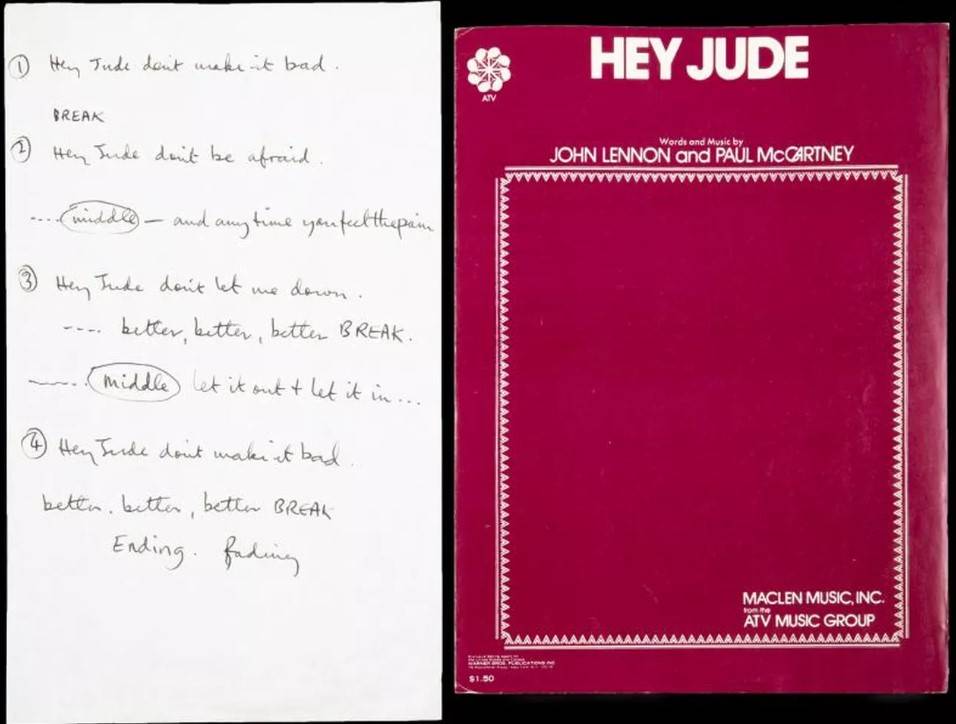 ① Hey Jude don't make it bad.
BREAK
② Hey Jude don't be afraid.
----- middle — and anytime you feel the pain
③ Hey Jude don't let me down.
---- better, better, better BREAK.
------- middle let it out + let it in ...
④ Hey Jude don't make it bad.
better. better, better BREAK
Ending. fading
HEY JUDE
ATV
Words and Music by
JOHN LENNON and PAUL McCARTNEY
MACLEN MUSIC, INC.
from the
ATV MUSIC GROUP
WARNER BROS. PUBLICATIONS INC.
$1.50